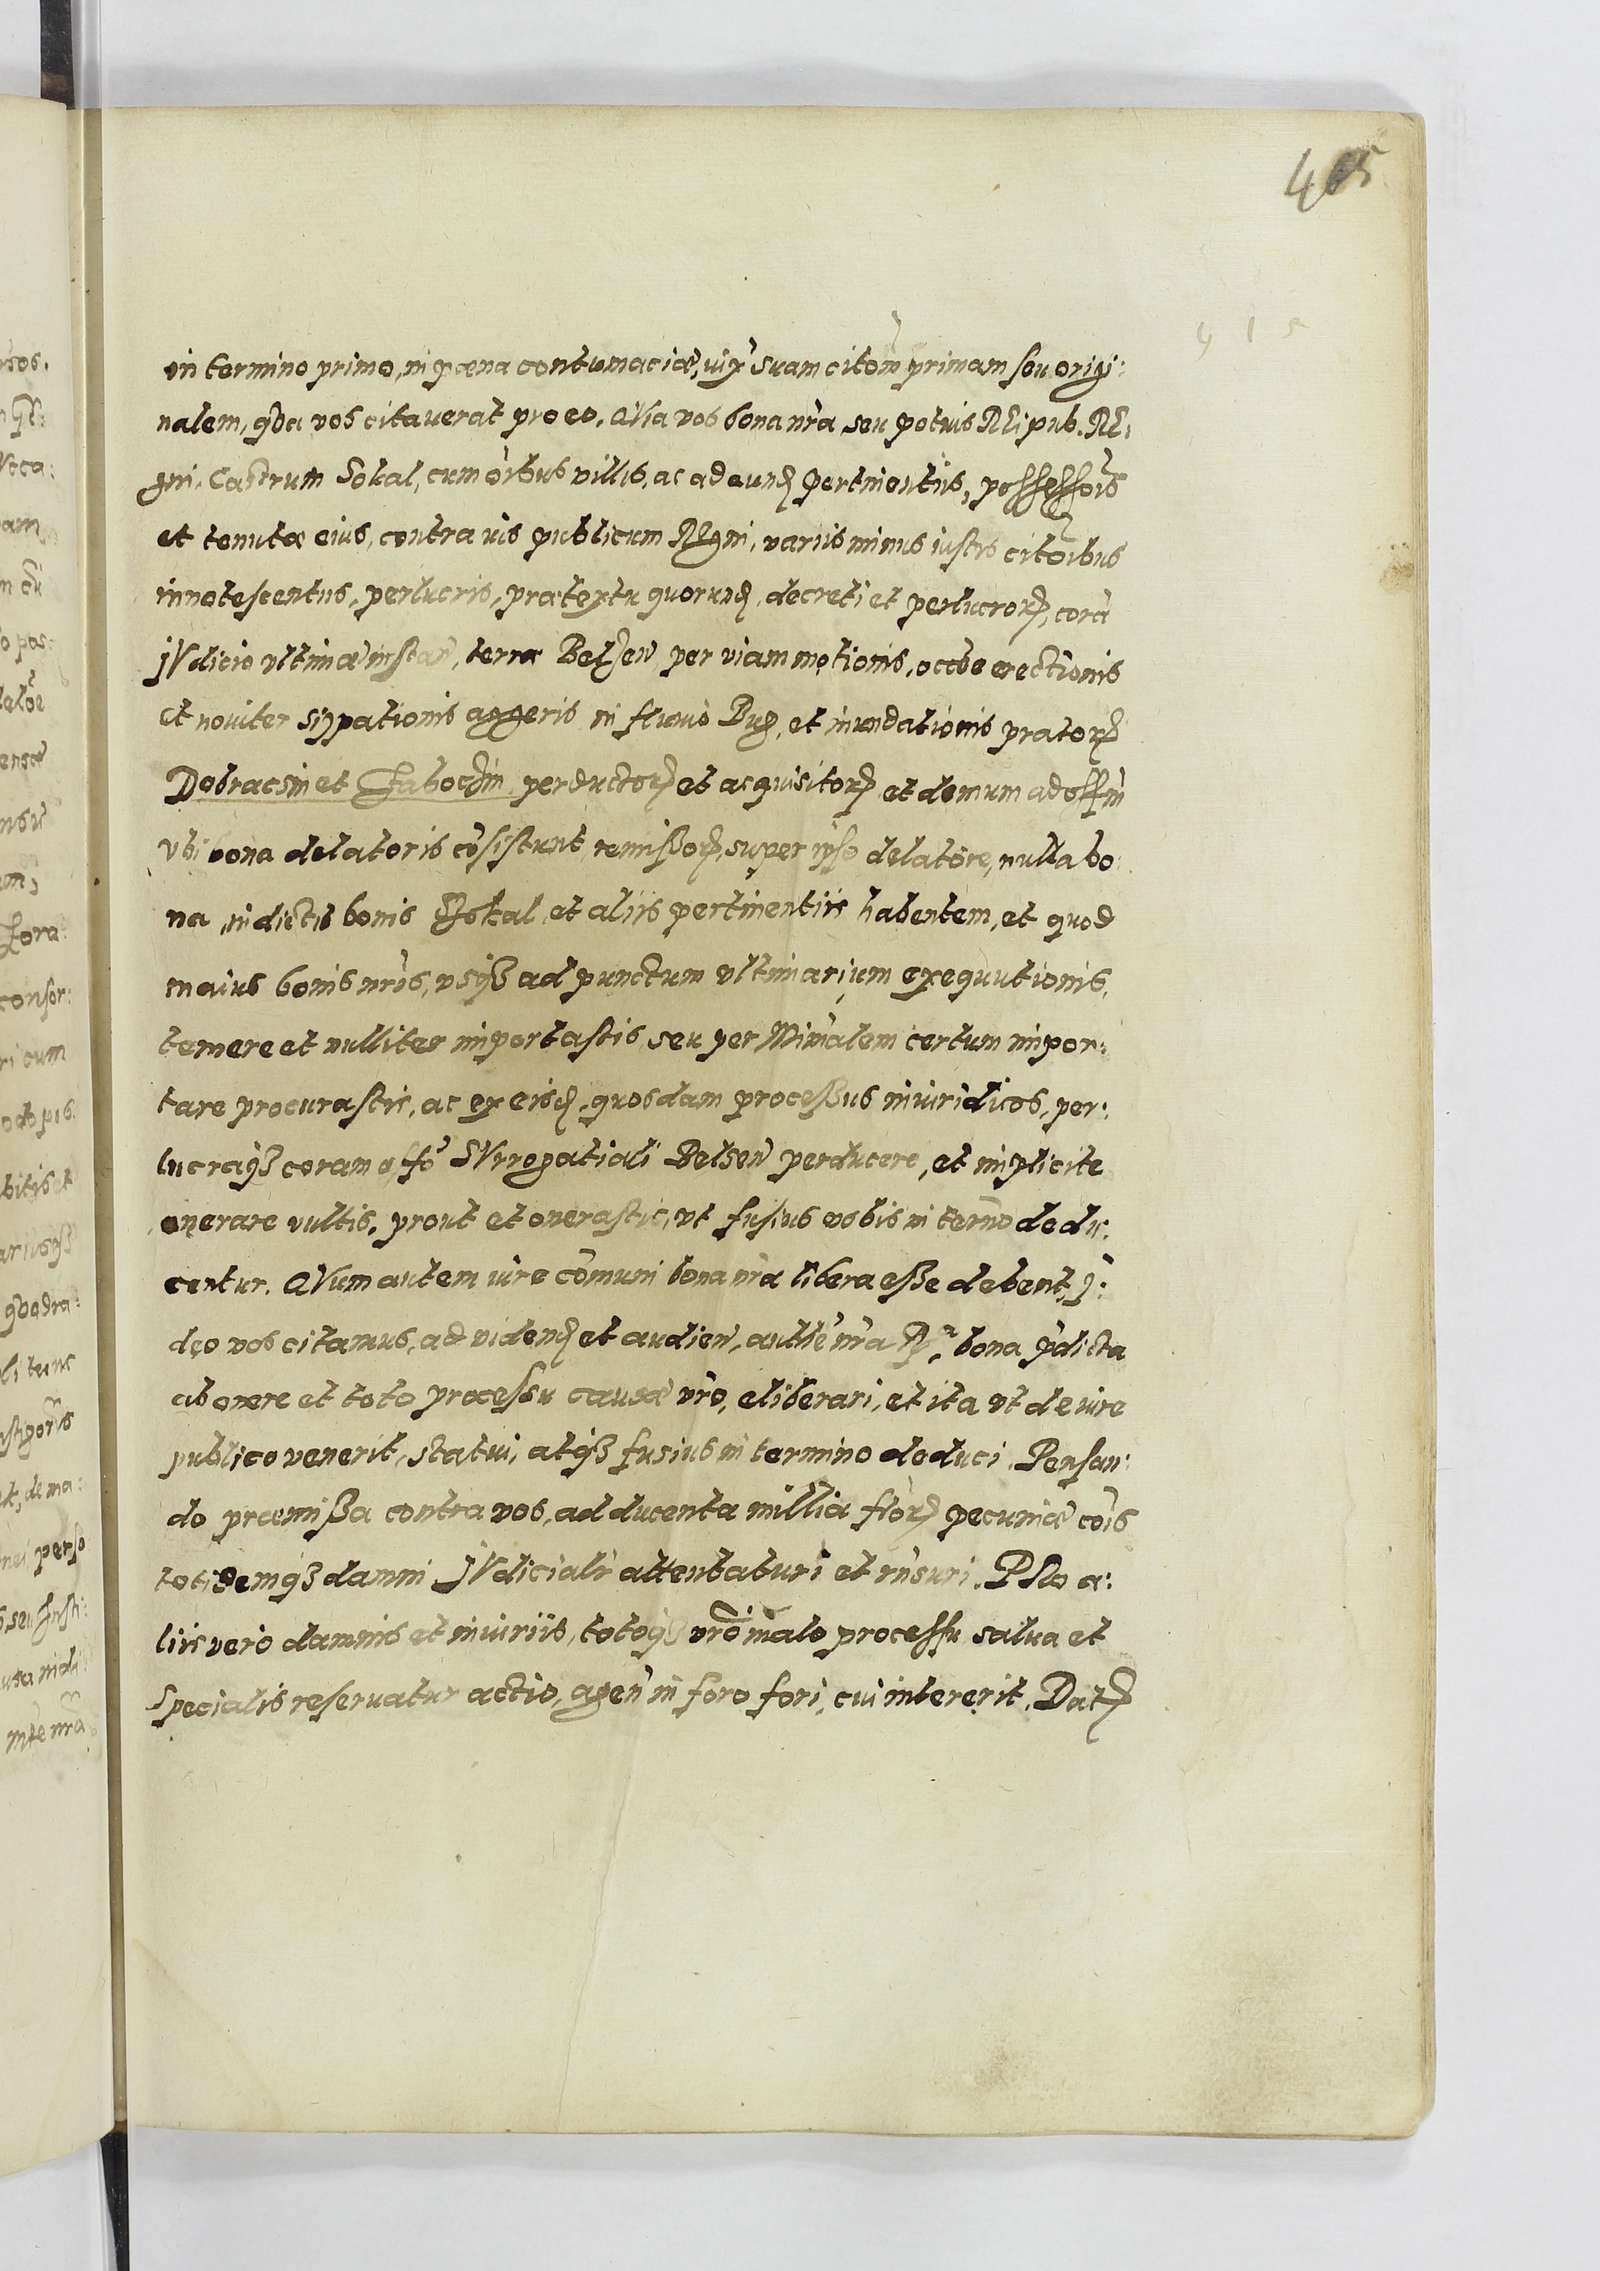 405
415
in termino primo, in pœna contumaciæ, iuxᵗ suam citõm primam seu origi:
nalem, qda vos citauerat pro eo. QVia vos bona nr̃a seu potius Rẽipub. Re:
gni, Castrum Sokal, cum õibus villis, ac ad eund pertinentiis, possessõis
et tenutæ eius, contra ius publicum Regni, variis minus iustis citõibus
innotescentus, perlucris, prætextu quorund, decreti et perlucror, corã
jVdicio vltimæ instañ, terræ Belzeñ per viam motionis, occõe erectionis
et nouiter sippationis aggeris in fluuio Bug, et inundationis prator
Dobracsin et Zaboczin, perductor et acquisitor, et demum ad offm
Vbi bona delatoris cõsistunt, remißor, super ipso delatore, nulla bo
na, in dictis bonis Sokal, et aliis pertinentiis habentem, et quod
maius bonis nr̃is, vsq ad punctum vltimarium exequutionis,
temere et nulliter importastis, seu per Minr̃alem certum impor:
tare procurastis, ac ex eisd, quosdam proceßus iniuridicos, per:
lucraq coram offõ SVrrogatiali Belzeñ perducere, et implicite
onerare vultis, prout et onerastis, vt fusius vobis in termõ dedu:
centur. QVum autem iure cõmuni bona nr̃a libera eße debent, I:
deo vos citamus, ad vidend et audieñ, authẽ nr̃a Rᵃ, bona p̃dicta
ab onere et toto processu causæ vr̃o, eliberari, et ita vt de iure
publico venerit, statui, atq fusius in termino deduci. Pensan:
do præmißa contra vos, ad ducenta millia flor pecuniæ cõis
totidemq damni jVdicialr̃ attentaturi et rñsuri. Pro a:
liis vero damnis et iniuriis, totoq vrõ malo processu salua et
specialis reseruatur actio, ageñ in foro fori, cui intererit. Dat